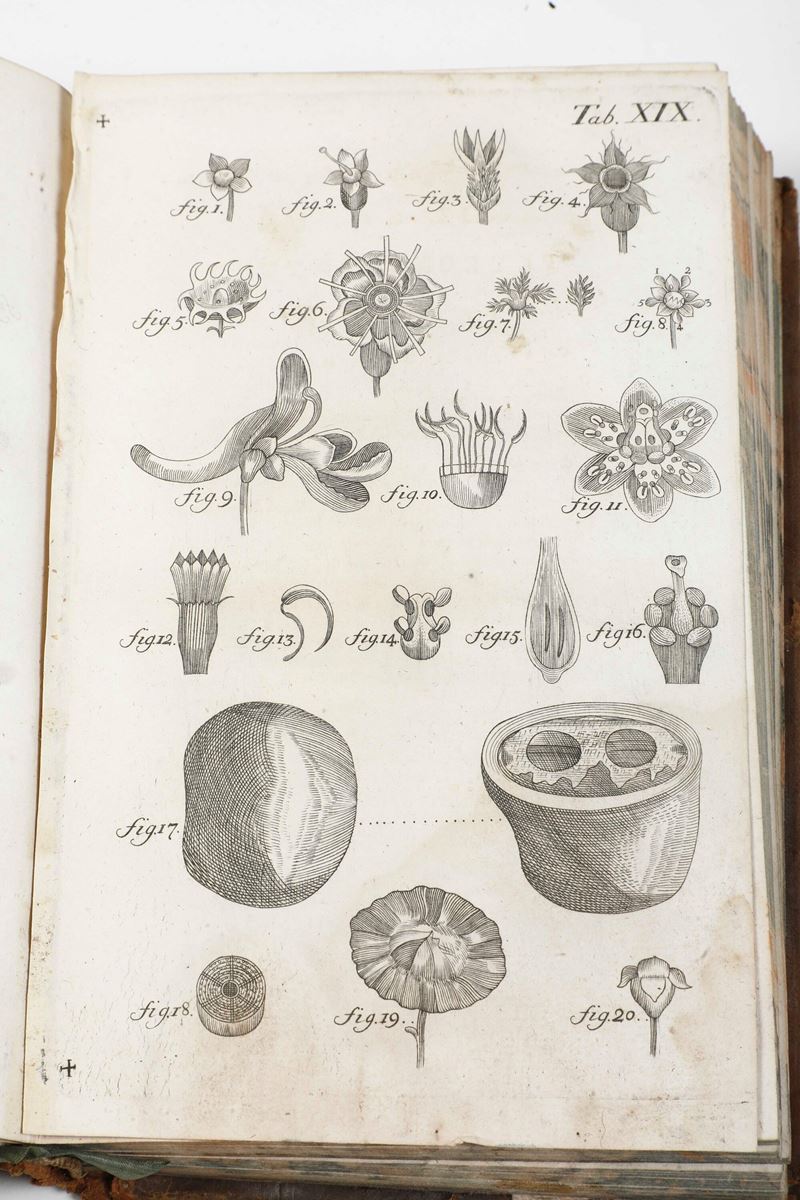 Tab. XIX.
fig.1. fig.2. fig.3. fig.4.
fig.5. fig.6. fig.7. fig.8.
1 2
5 3
4
fig.9. fig.10. fig.11.
fig12. fig.13. fig14. fig15. fig16.
fig17.
fig18. fig.19. fig.20.